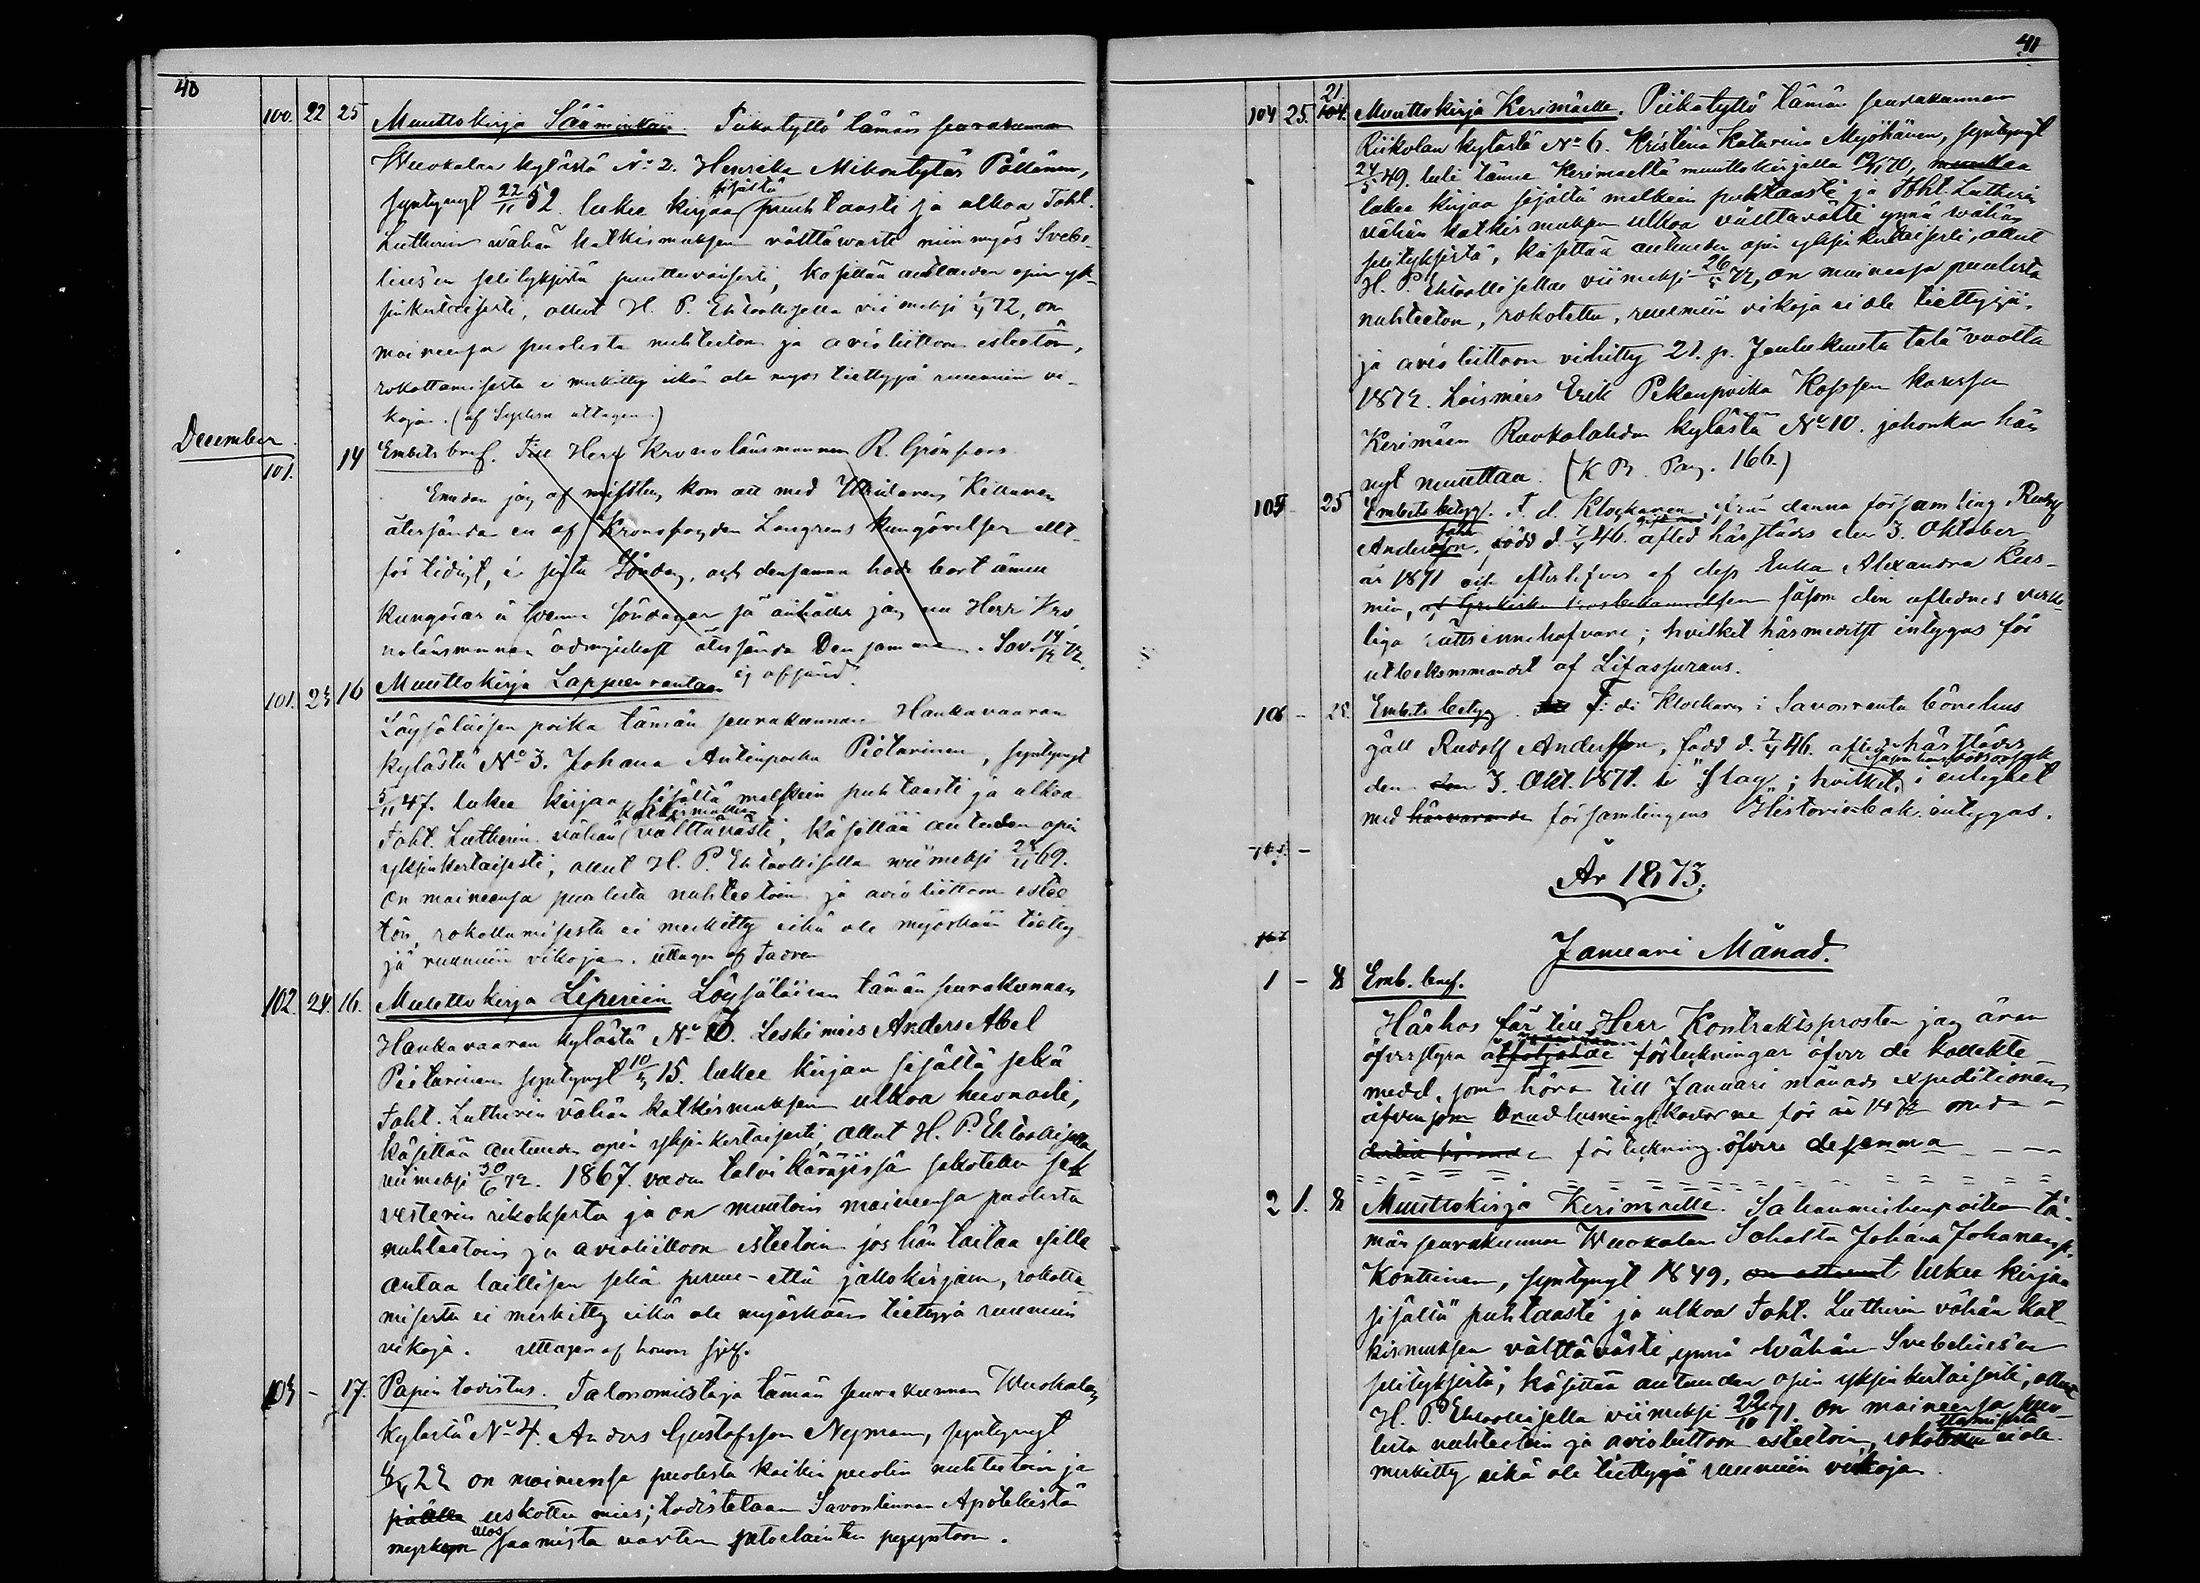 40
100. 22 25 Muuttokirja Sääminkiin. Piikatyttö tämän seurakunnan
Wuokalan kylästä No 2. Henrika Mikontytär Pöllänen,
syntynyt 22/11 52. lukee kirjaa sisästä puhtaasti ja ulkoa Toht.
Lutherin vähän katkismuksen välttäwästi niin myös Svebe-
lius'en selityksistä puuttuvaisesti, käsittää autuuden opin yk-
sinkertaisesti, ollut H. P. Ehtoollisella viimeksi 72, on
maineensa puolesta nuhteeton ja avioliittoon esteetön,
rokottamisesta ei merkitty eikä ole myös tiettyjä ruumiin vi-
koja. (af Systern uttagen)
December
101. 14 Embets bref. Till Herr Kronolänsmannen R. Grönfors
Emedan jag af misstag kom att med Uhlanen Killanen
återsända en af Kronofogden Longrens kungörelser allt
för tidigt, i sista Söndag, och densamma hade bort ännu
kungöras å tvenne söndagar så anhåller jag nu Herr Kro
nolänsmannen ödmjukast återsända Den samma. Sav. 14/12 72.
ej afsänd.
101. 23 16 Muuttokirja Lappeenrantaan
Löysäläisen poika tämän seurakunnan Haukavaaran
kylästä No 3. Johana Antinpoika Pietarinen, syntynyt
5/11 47. lukee kirjaa sisältä melkein puhtaasti ja ulkoa
Toht. Lutherin vähän katkismuksen välttävästi, käsittää autuuden opin
yksinkertaisesti, ollut H. P. Ehtoollisella viimeksi 28/11 69.
on maineensa puolesta nuhteetoin ja avioliittoon estee
tön, rokottamisesta ei merkitty eikä ole myöskään tietty
jä ruumiin vikoja. uttagen af fadren
102. 24. 16. Muuttokirja Liperiin Löysäläinen tämän seurakunnan
Haukavaaran kylästä No 3. Leskimies Anders Abel
Pietarinen syntynyt 10/ 15. lukee kirjan sisältä sekä
Toht. Lutherin vähän katkismuksen ulkoa huonosti,
käsittää autuuden opin yksinkertaisesti, ollut H. P. Ehtoollisella
viimeksi 30/6 72. 1867. vuoden talvikäräjissä sakotettu
rikoksesta ja on muutoin maineensa puolesta
nuhteetoin ja avioliittoon esteetoin jos hän taitaa esille
antaa laillisen sekä perun- että jakokirjan, rokotta
misesta ei merkitty eikä ole myöskään tiettyjä ruumiin
vikoja. uttagen af honom sjelf.
103 - 17. Papin todistus. Talonomistaja tämän seurakunnan Wuokalan
kylästä No 4. Anders Gustafsson Nyman, syntynyt
22 on maineensa puolesta kaikin puolin nuhteetoin ja
päälle uskottu mies; todistetaan Savonlinnan Apotekista
myrkyn ulos saamista varten petoeläinten pyyntöön.
41
104 25. 21. Muuttokirja Kerimäelle. Piikatyttö tämän seurakunnan
Riikolan kylästä No 6. Kristina Katarina Myöhänen, syntynyt
24/5 49. tuli tänne Kerimaeltä muuttokirjalla 70,
lukee kirjaa sisältä melkein puhtaasti ja Toht. Lutherin
vähän katkismuksen ulkoa välttävästi ynnä wähän
selityksistä, käsittää autuuden opin yksinkertaisesti, ollut
H. P. Ehtoollisella viimeksi 26/ 72, on maineensa puolesta
nuhteeton, rokotettu, ruumiin vikoja ei ole tiettyjä
ja avioliittoon vihitty 21. p. Joulukuuta tätä vuotta
1872. Loismies Erik Pekanpoika Kossen kanssa
Kerimäen Ruokolahden kylästä No 10. johonka hän
nyt muuttaa. (K B. Pag. 166.)
105 - 25 Embets betyg. F. d. Klockaren från denna församling Rudolf
Andersson, född d. 7/ 46. afled härstädes den 3. Oktober
år 1871 och efterlefves af dess Enka Alexandra Kus-
min, såsom den aflednes verke
liga rättsinnehafvare; hvilket härmedelst intygas för
utbekommandet af Lifassurans.
106 - 25. Embets betyg. F. d. Klockaren i Savonranta bönehus
gäll Rudolf Andersson, född d. 7/ 46. afled härstädes
den 3. Okt. 1871. i Slag; hvilket, i enlighet
med härvarande församlingens Historiebok intygas.
År 1873.
Januari Månad.
1 - 8 Emb. bref.
Härhos får till Herr Kontraktsprosten jag även
öfverstyra åtföljande förteckningar öfver de kollekte
medel, som höra till Januari månads expeditionen
äfvensom för år 1872
förteckning öfver desamma
2 1. 8 Muuttokirja Kerimaelle. Sahanmiehenpoika tä-
män seurakunnan Wuokalan Sahalta Johana Johananp.
Konttinen, syntynyt 1849, lukee kirjaa
sisältä puhtaasti ja ulkoa Toht. Lutherin vähän kat-
kismuksen välttävästi, ynnä wähän Svebelius'en
selityksistä, käsittää autuuden opin yksinkertaisesti, ollut
H. P. Ehtoollisella viimeksi 22/10 71. on maineensa puo-
lesta nuhteetoin ja avioliittoon esteetoin, rokottamisesta ei ole
merkitty eikä ole tiettyjä ruumiin vikoja.